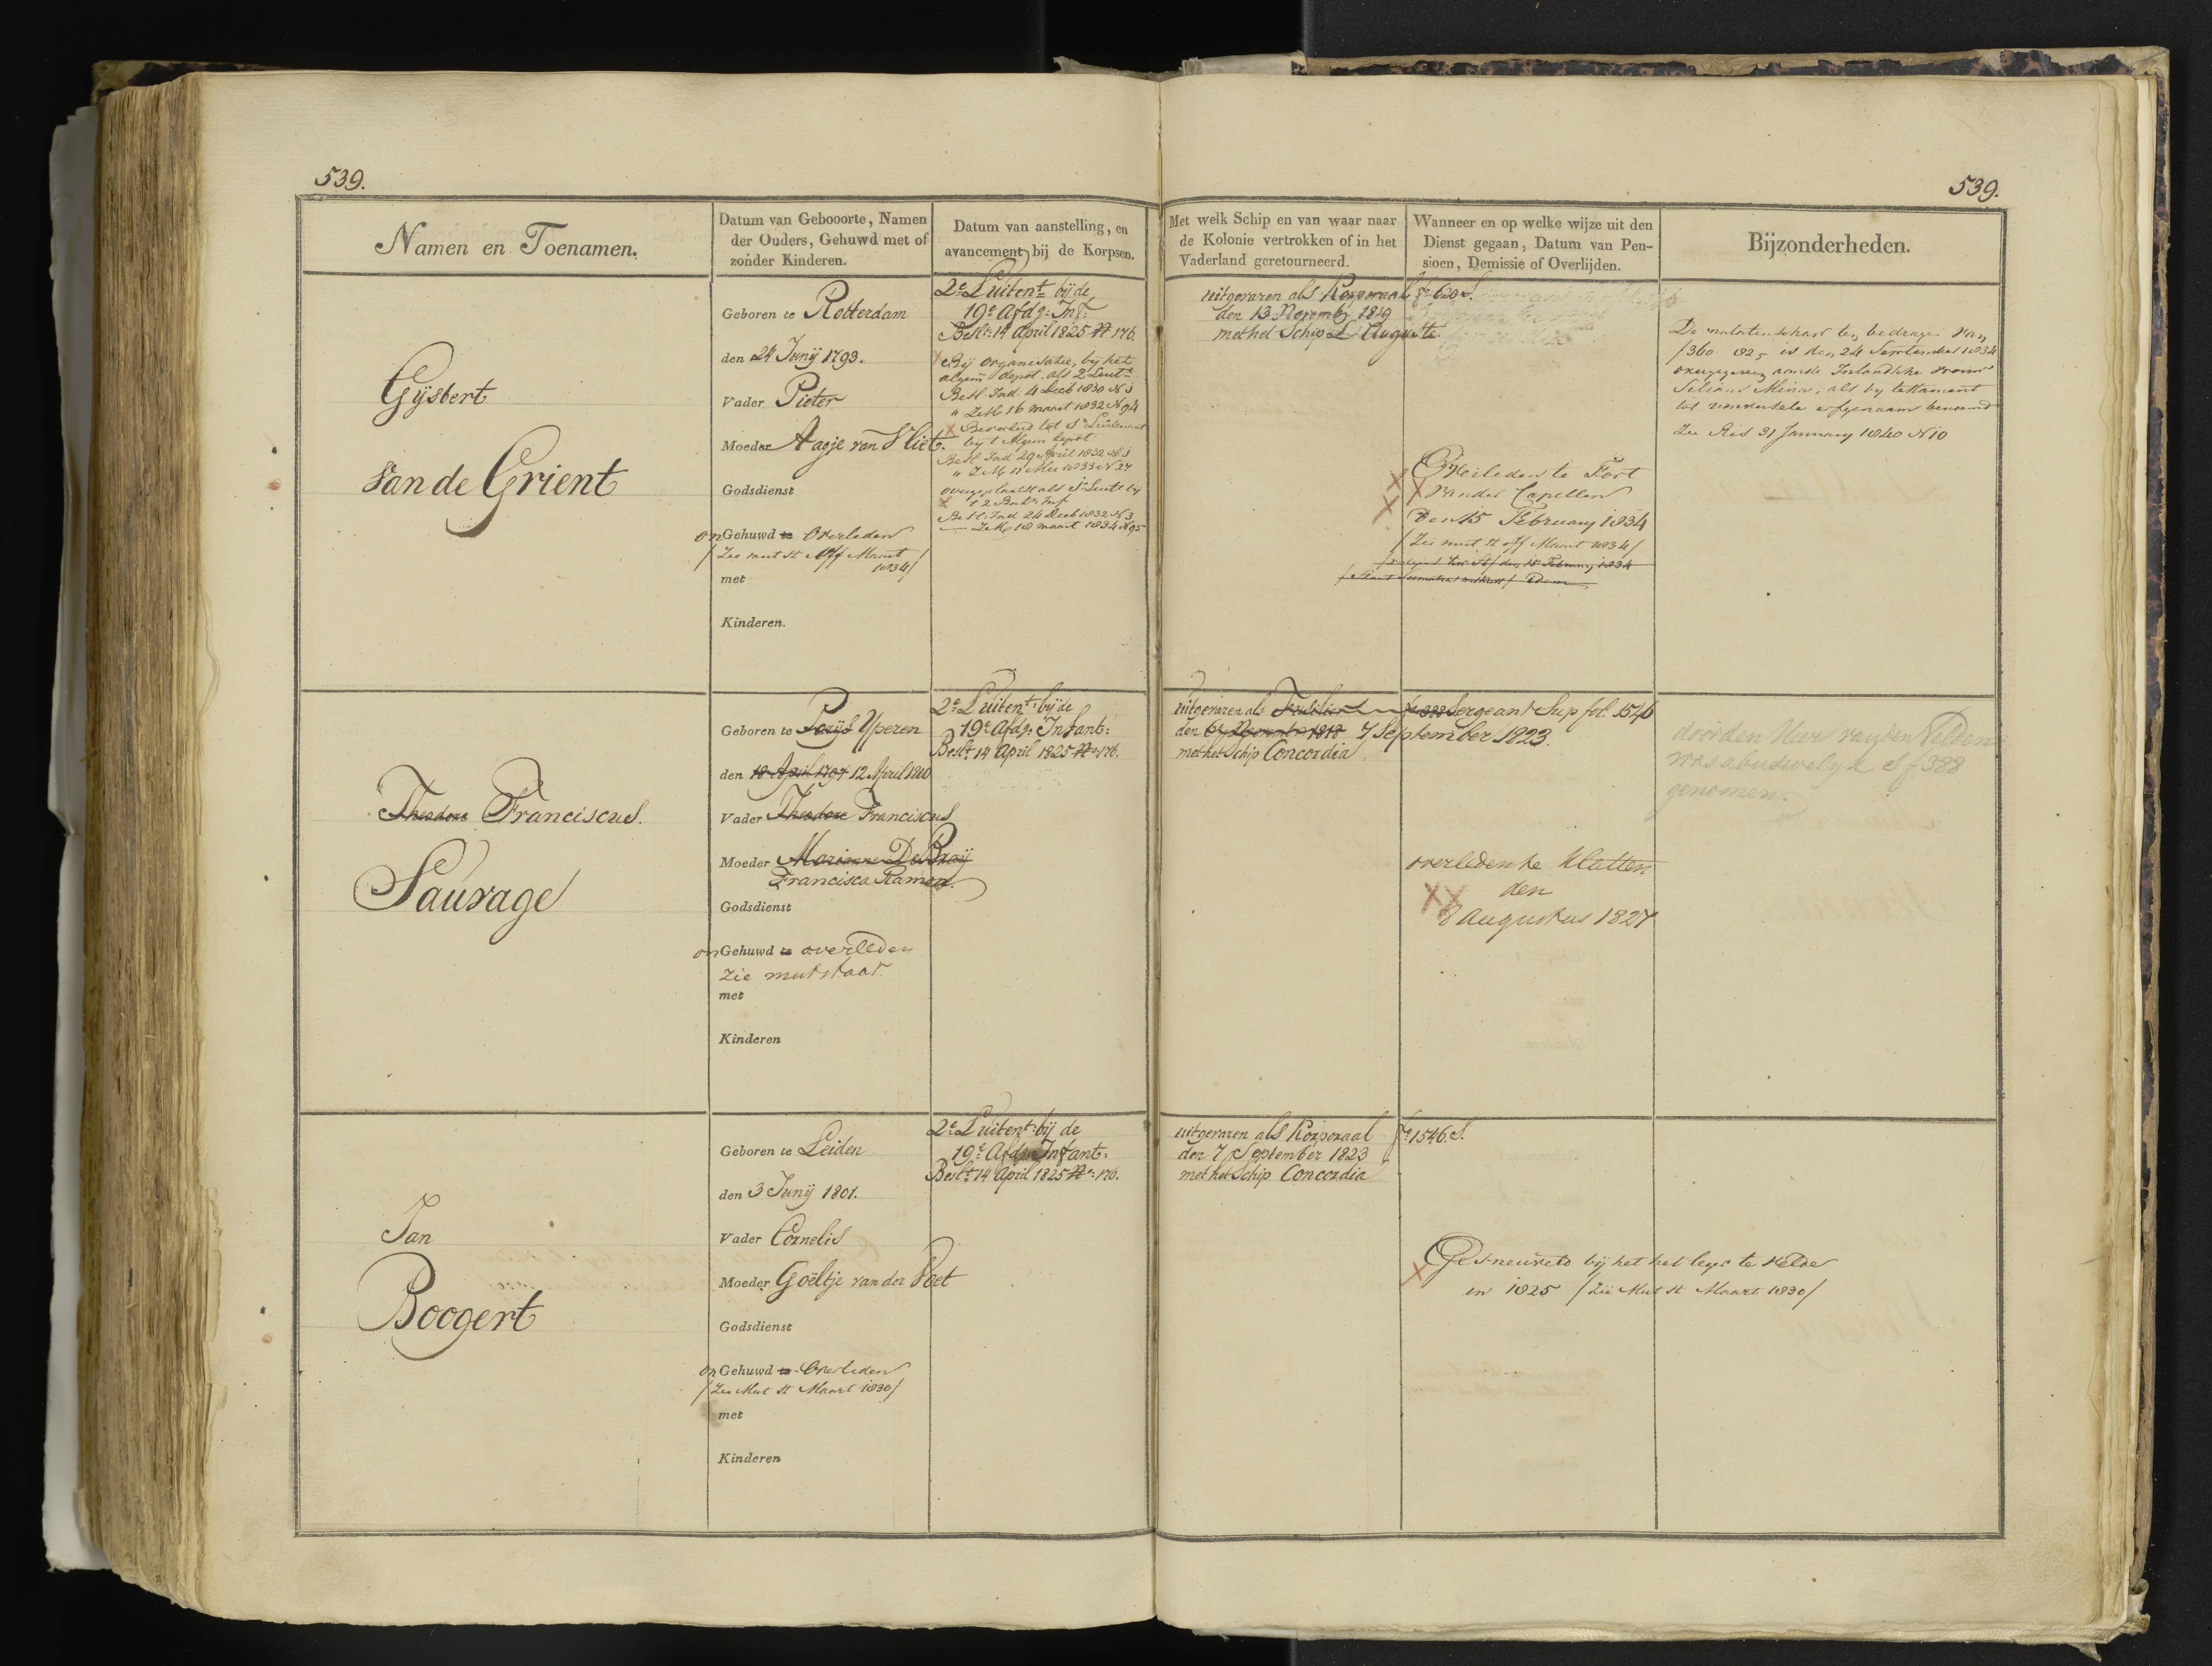 539.
539.
Namen en Toenamen.
Datum van Gebooorte, Namen
der Ouders, Gehuwd met of
zonder Kinderen.
Datum van aanstelling, en
avancement bij de Korpsen.
Met welk Schip en van waar naar
de Kolonie vertrokken of in het
Vaderland geretourneerd.
Wanneer en op welke wijze uit den
Dienst gegaan, Datum van Pen-
sioen, Demissie of Overlijden.
Bijzonderheden.
Gijsbert
Van de Grient
Geboren te Rotterdam
den 24 Junij 1793.
Vader Pieter
Moeder Aagje van Vliet.
Godsdienst
onGehuwd te Overleden
/Zie mut st Off Maart
1834/
met
Kinderen.
2e Luitent bij de
19e Afdg: Inf:
Beslt: 14 April 1825 No 176.
Bij organisatie, bij het
algem depot als 2 Luitt
Besl Ind 4 Decb 1830 N 3
" ZM 16 maart 1832 N 94
Bevorderd tot 1e Luitenant
by t Algem depot
Besl Ind 29 April 1832 N 3
" ZM 11 Mei 1833 N 27
overgeplaatst als 1e Luitt bij
t 2 Bat Inf
Besl: Ind 24 Decb 1832 N 3
ZM 18 maart 1834 N 95
uitgevaren als Korporaal fo 620 S.
den 13 Novemb 1819
met het Schip L'Auguste.
Overleden te Fort
van der Capellen
Den 15 February 1834
/Zie mut st off Maart 1834/
den 15 February 1834
De nalatenschap ten bedrage van
f 360 82 5 is den 24 September 1834
overgegeven aan de Inlandsche vrouw
Mina, als by testament
tot universele erfgenaam benoemd
Zie Res 31 January 1840 N 10
Theodore Franciscus.
Sauvage
Geboren te Parijs Yperen
den 18 April 1797 12 April 1800
Vader Theodore Franciscus
Moeder Marianne De Braij
Francisca Ramon.
Godsdienst
onGehuwd te overleden
zie mut staat
met
Kinderen
2e Luitent: bij de
19e Afdg: Infant:
Beslt 14 April 1825 No 176.
uitgevaren als Fuselier fo 388 Sergeant Sup fol: 1546
den 7 September 1823.
met het Schip Concordia
overleden te Klatten
den
8 Augustus 1827
door den Heer van den Velden
was abusivelyk S f 388
genomen.
Jan
Boogert
Geboren te Leiden
den 3 Junij 1801.
Vader Cornelis
Moeder Goëltje van der Poet
Godsdienst
onGehuwd te Overleden
/Zie Mut st Maart 1830/
met
Kinderen
2e Luitent: bij de
19e Afdg Infant:
Beslt 14 April 1825 No: 176.
uitgevaren als Korporaal fo 1546. S.
den 7 September 1823
met het Schip Concordia
Gesneuveld bij het het leger te velde
in 1825 /Zie Mut st Maart 1830/